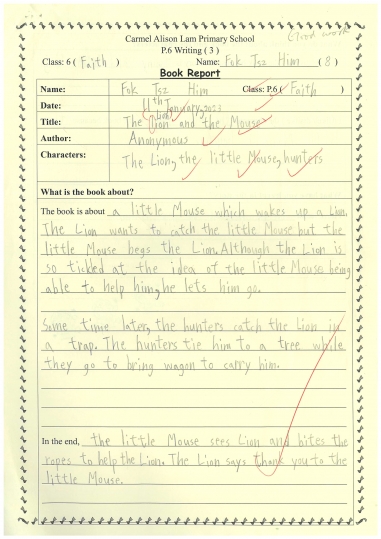 Good work
Carmel Alison Lam Primary School
P.6 Writing ( 3 )
Class: 6 ( Faith ) Name: Fok Tsz Him ( 8 )
Book Report
Name: Fok Tsz Him Class: P.6 ( Faith )
Date: 11th January, 2023
Title: The Lion and the Mouse
Author: Anonymous
Characters: The Lion, the little Mouse, hunters
What is the book about?
The book is about a little Mouse which wakes up a Lion.
The Lion wants to catch the little Mouse but the
little Mouse begs the Lion. Although the Lion is
so tickled at the idea of the little Mouse being
able to help him, he lets him go.
Some time later, the hunters catch the Lion in
a trap. The hunters tie him to a tree while
they go to bring wagon to carry him.
In the end, the little Mouse sees Lion and bites the
ropes to help the Lion. The Lion says thank you to the
little Mouse.